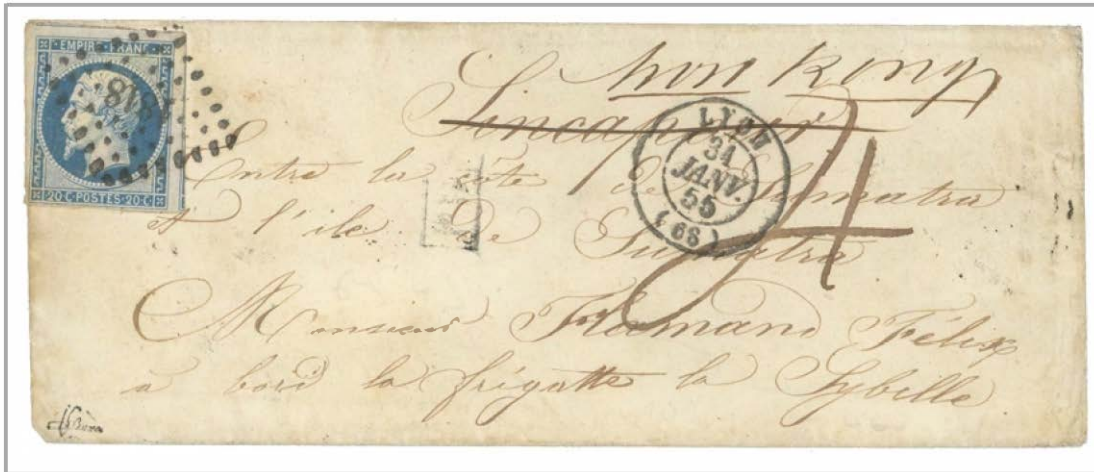 EMPIRE FRANC
20 C POSTES 20 C
818
hon Kong
Sincapour
LYON
31
JANV.
55
(68)
Entre la côte de Sumatra
A l'ile De Sumatra
Monsieur Flamand Félix
a bord la frégatte la Sybille